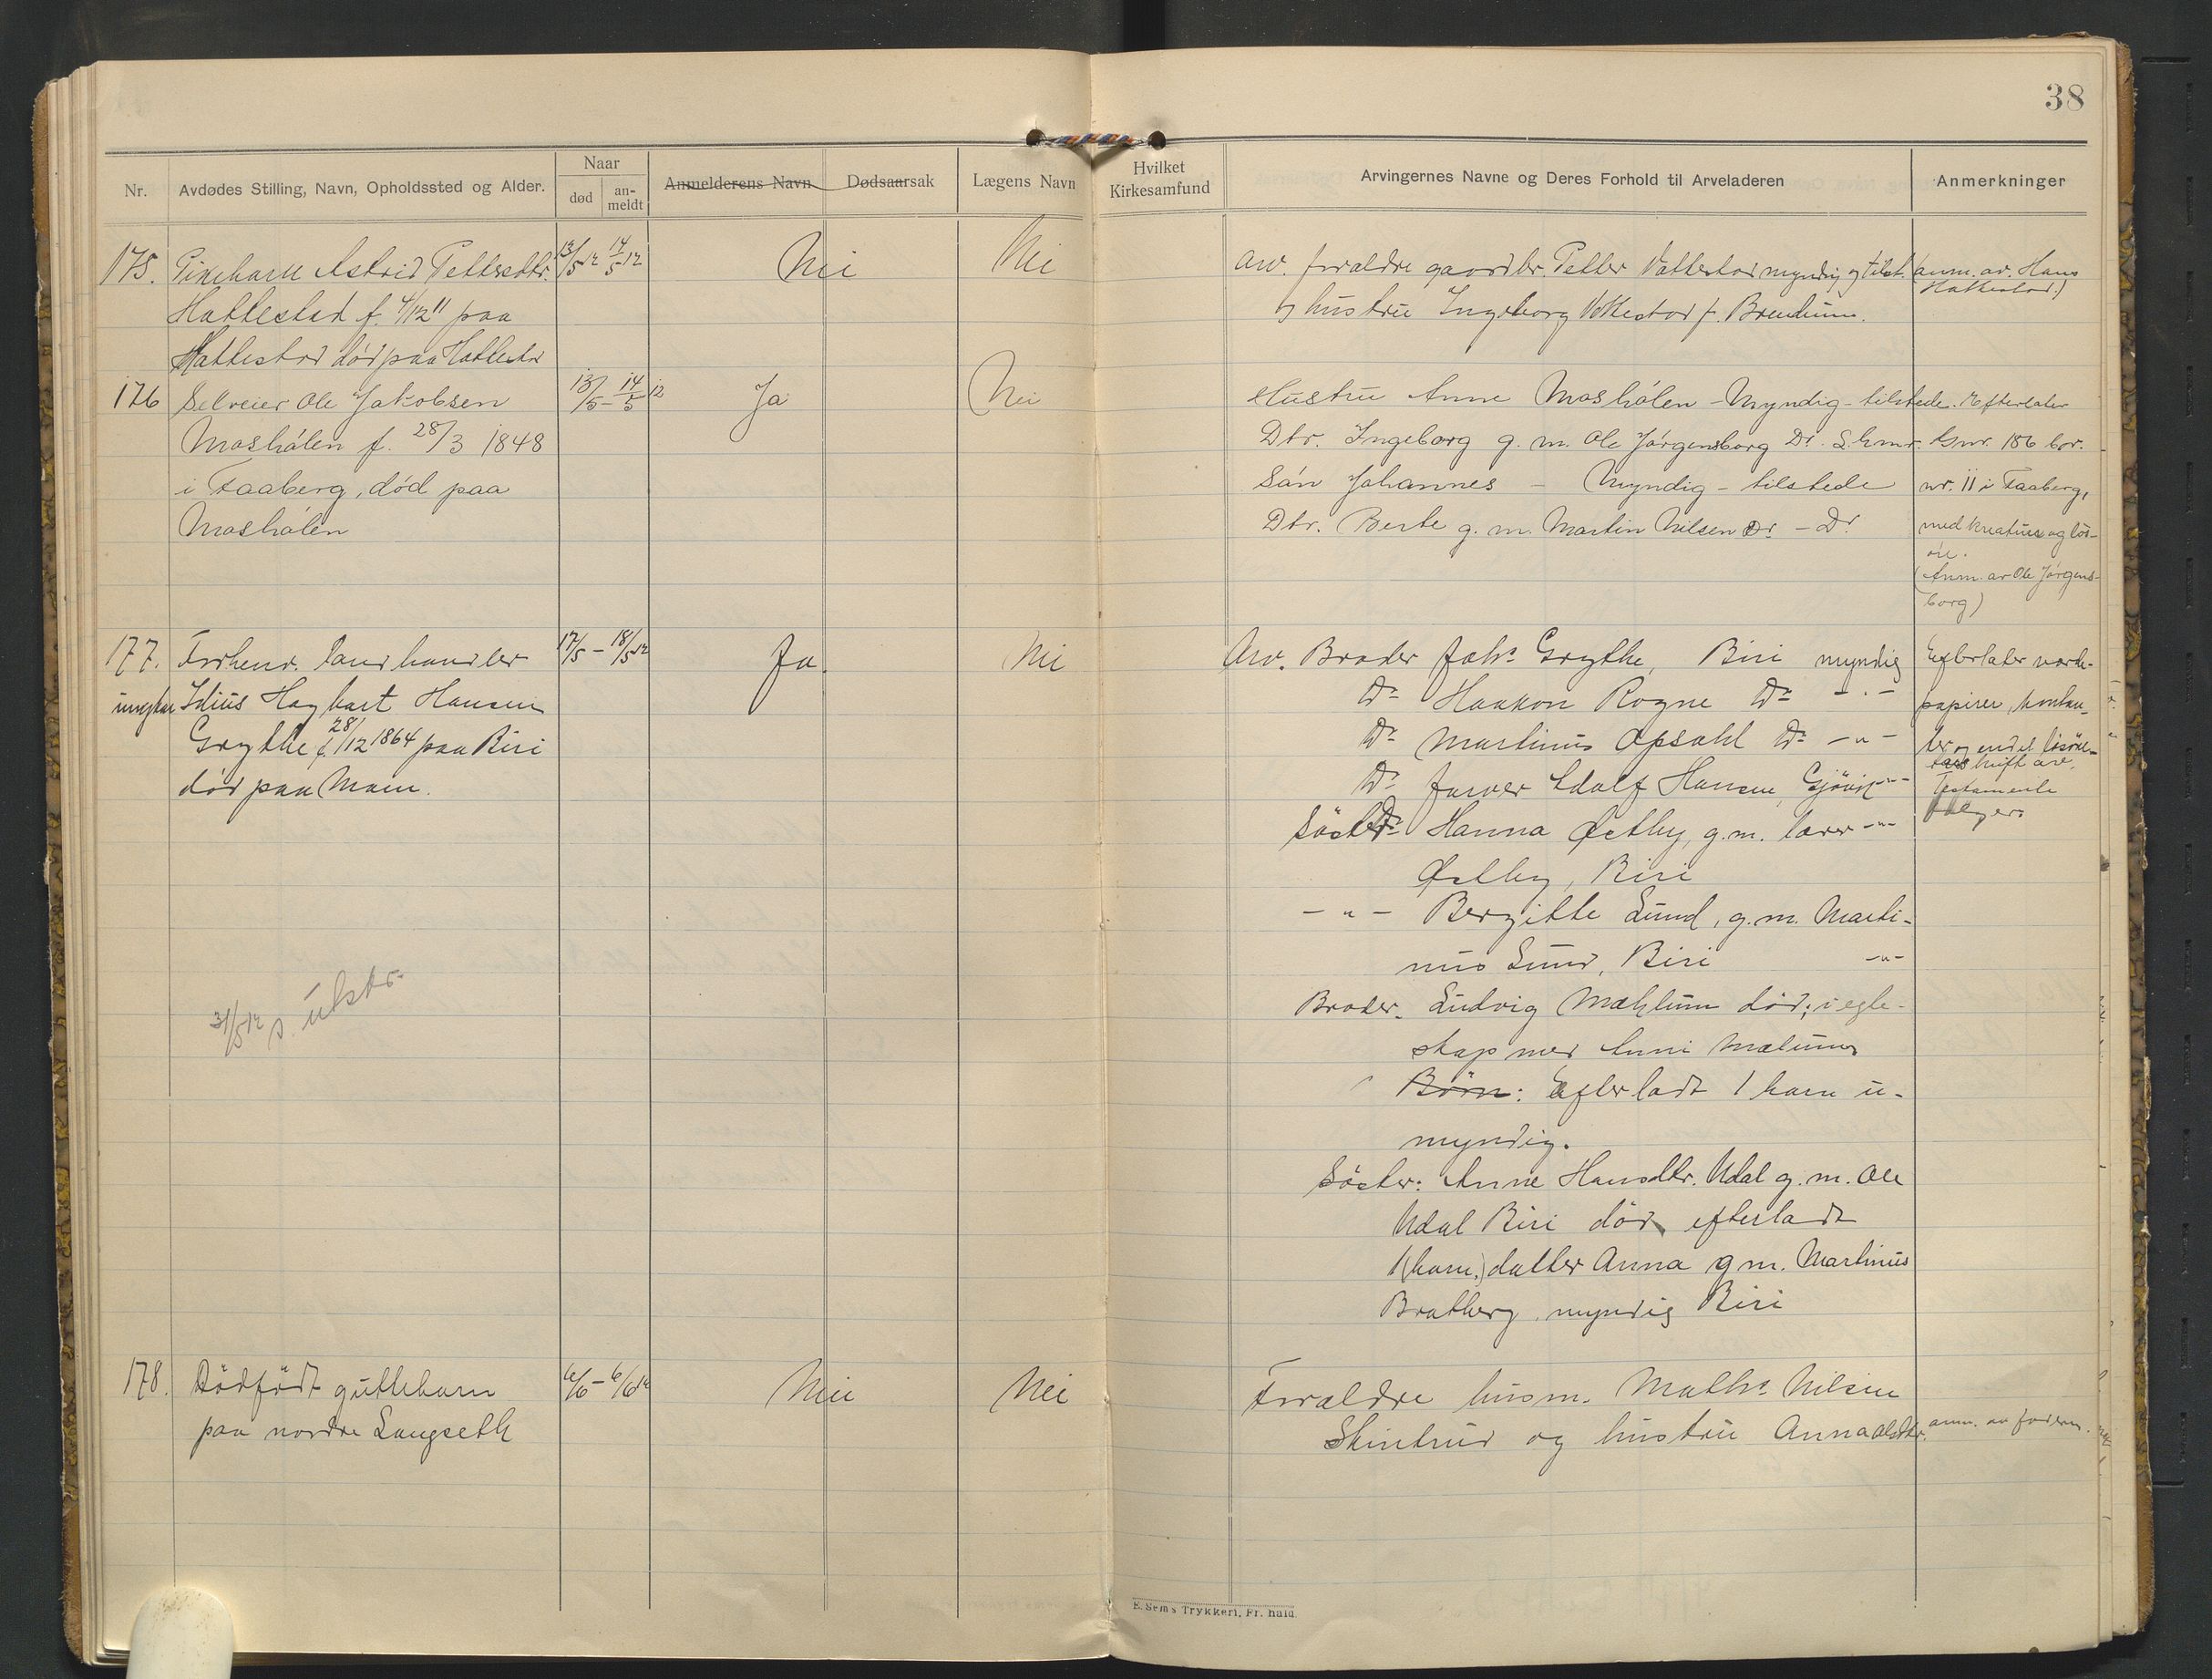 38
Nr.
Avdødes Stilling, Navn, Opholdssted og Alder.
Naar
død
an-
meldt
Anmelderens Navn
Dødsaarsak
Lægens Navn
Hvilket
Kirkesamfund
Arvingernes Navne og Deres Forhold til Arveladeren
Anmerkninger
175. Pikebarn Astrid Pettersdtr. 13/5 12 14/5 12 Nei Nei
Hattestad f. 4/12 11 paa
Hattestad død paa Hattestad
Arv. foraldre gaardbr. Petter Hattestad myndig og tilst.
og hustru Ingeborg Hattestad f. Brendum.
(anm. av. Hans
Hattestad.)
176 Selveier Ole Jakobsen 13/5 - 14/5 12 Ja Nei
Moshólen f. 28/3 1848
i Faaberg, død paa
Moshólen
Hustru Anne Moshólen - Myndig - tilstede.
Dtr. Ingeborg g. m. Ole Jörgensborg Do. L.hmr.
Sön Johannes - Myndig - tilstede
Dtr. Berte g. m. Martin Nilsen Do. - Do.
Efterlater
Gnr. 186 br.
nr. 11 i Faaberg,
med kreaturer og lös-
öre.
(Anm. av Ole Jörgens-
borg)
177. Forhenv. landhandler 17/5 - 18/5 12 Ja. Nei
ungkar Idius Hagbart Hansen
Grythe f. 28/12 1864 paa Biri
död paa Moen.
31/5 12 s. utskr.
Arv. Broder Johs. Grythe, Biri myndig
Do. Haakon Rogne Do. - " -
Do. Martinus Opsahl Do. - " -
Do. farver Edolf Hansen, Gjövik - " -
Söster Hanna Østby, g. m. lærer - " -
Østby, Biri
- " - Bergitte Lund, g. m. Marti-
nus Lund, Biri - " -
Broder. Ludvig Mæhlum död; i egte-
skap med Anni Mælum
Börn: Efterladt 1 barn u-
myndig.
Söster: Anne Hansdtr. Udal g. m. Ole
Udal Biri död efterladt
1 (barn.) datter Anna g m. Martinus
Bratberg, myndig Biri
Efterlater værdi-
papirer, kontan-
ter og endel lösöre
Testamente
fölger
178. Dödfödt guttebarn 6/6 - 6/6 12 Nei Nei
paa nordre Langseth
Forældre husm. Maths. Nilsen
Skintrud og hustru Anna Olsdtr.
anm. av faderen.
E. Sem's Trykkeri, Fr. hald.